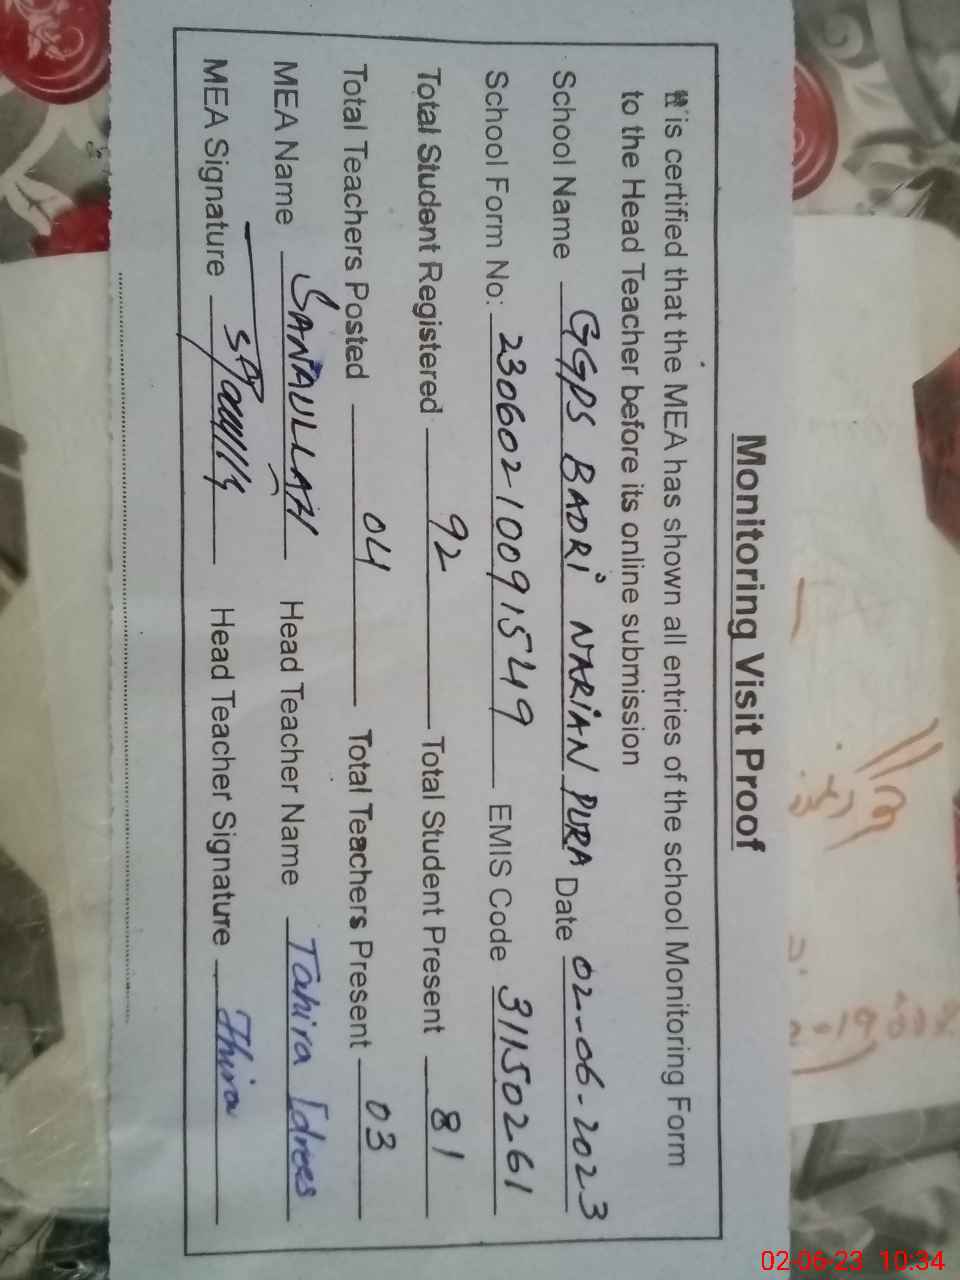 Monitoring Visit Proof
It is certified that the MEA has shown all entries of the school Monitoring Form
to the Head Teacher before its online submission
School Name GGPS BADRI NARIAN PURA Date 02-06-2023
School Form No: 23060210091549 EMIS Code 31150261
Total Student Registered 92 Total Student Present 81
Total Teachers Posted 04 Total Teachers Present 03
MEA Name SANAULLAH Head Teacher Name Tahira Idrees
MEA Signature Head Teacher Signature
02-06-23 10:34